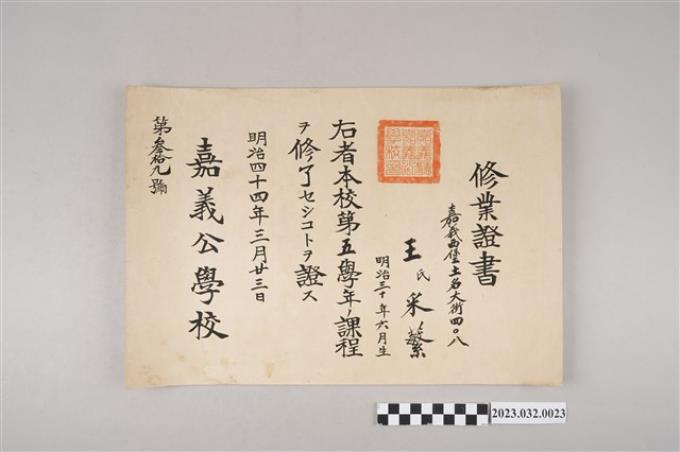 修業證書
嘉義西堡土名大街四〇八
王氏采蘩
明治三十年六月生
右者本校第五學年ノ課程
ヲ修了セシコトヲ證ス
明治四十四年三月廿三日
嘉義公學校
第叄拾九號
2023.032.0023